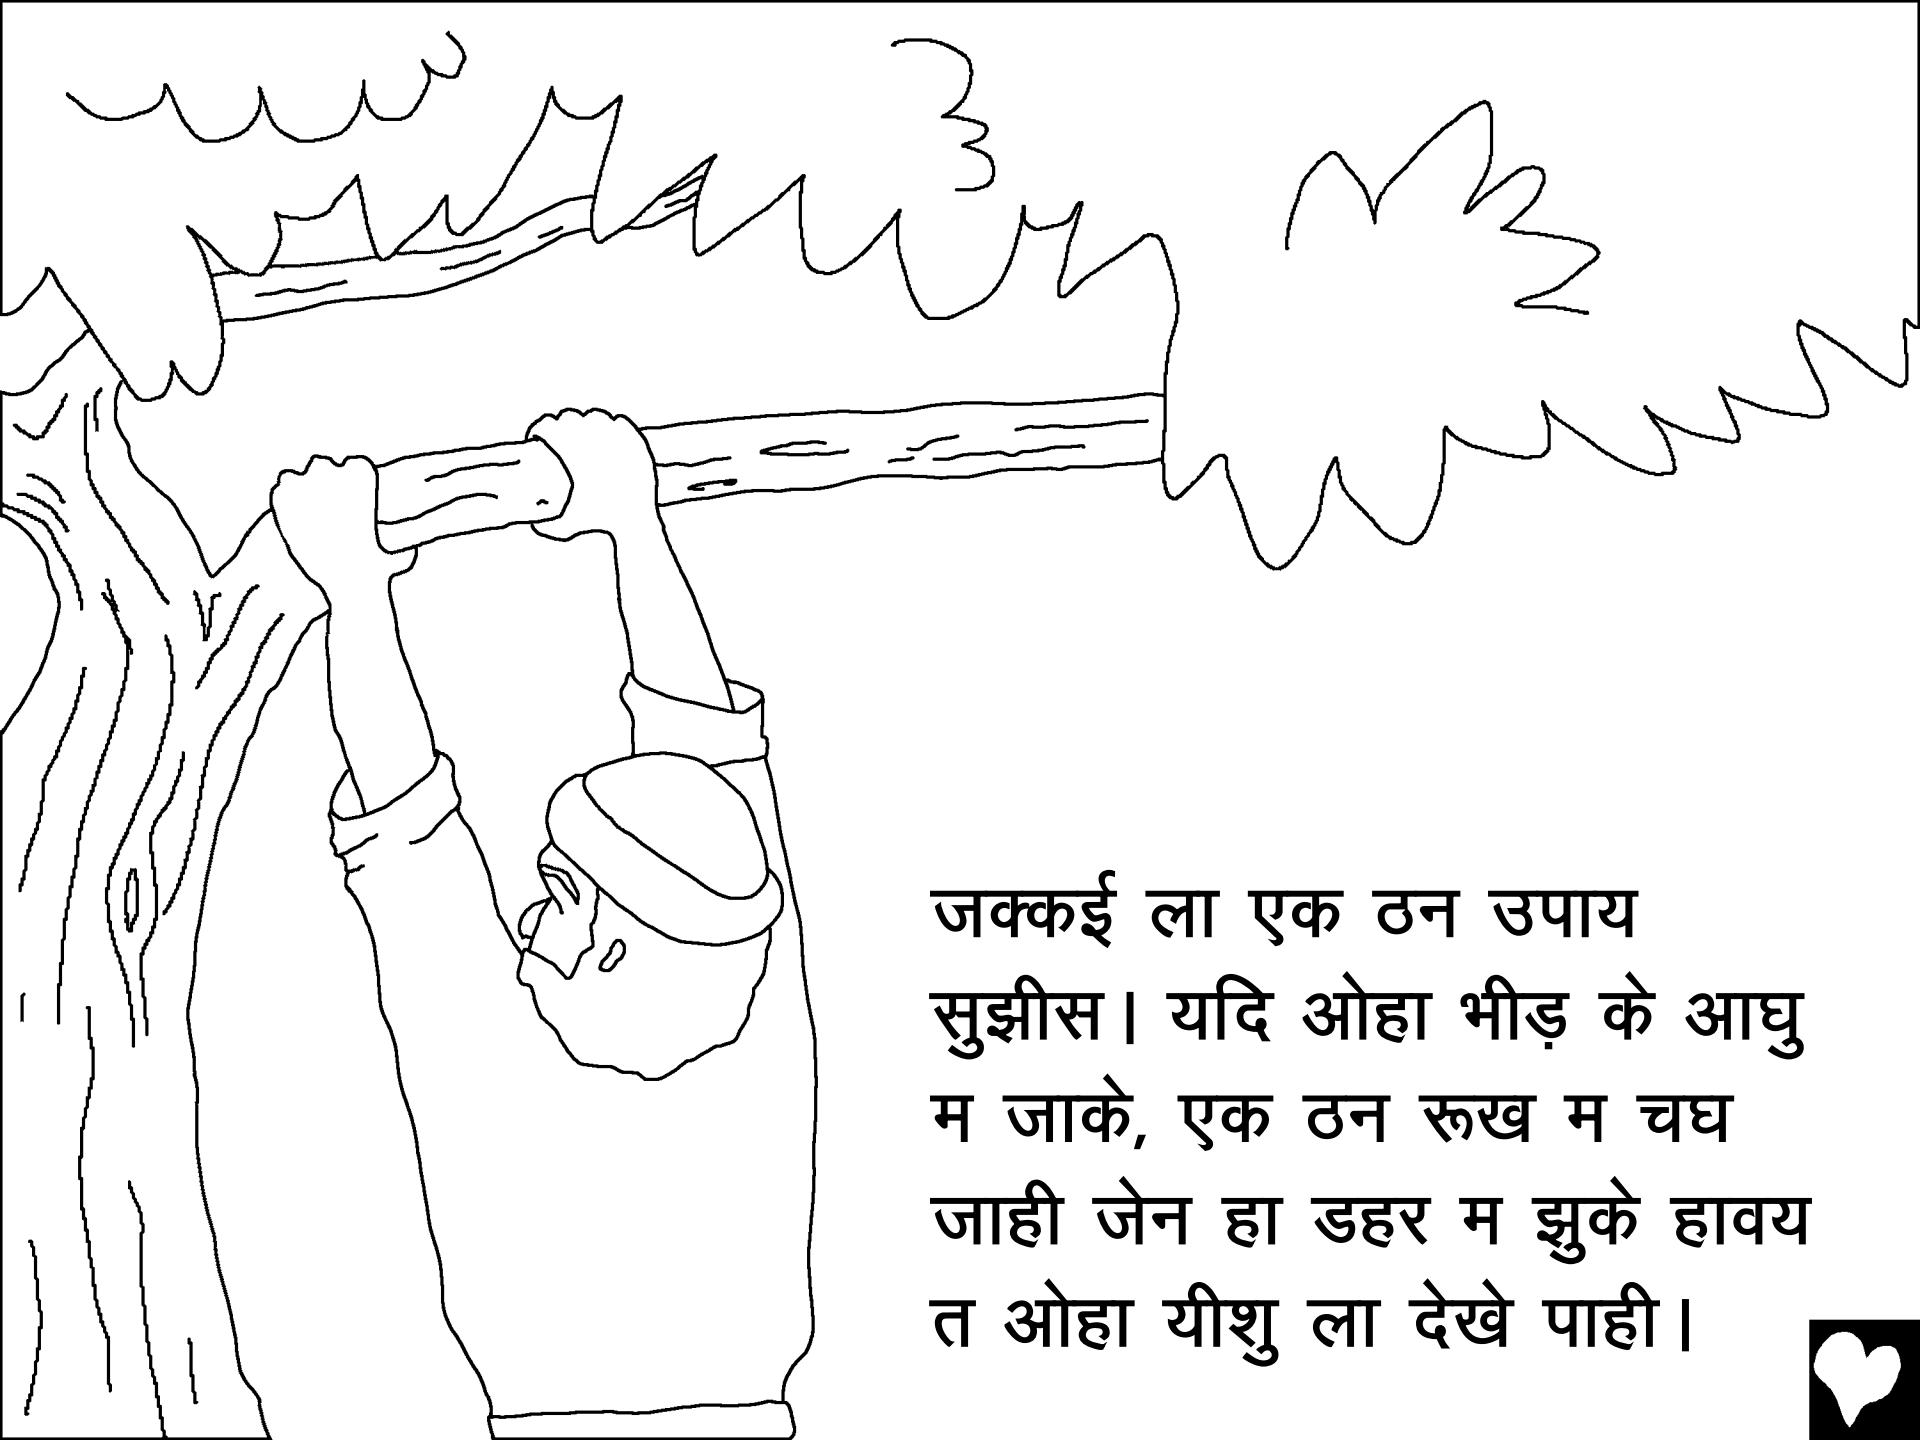 जक्कई ला एक ठन उपाय
सुझीस। यदि ओहा भीड़ के आघु
म जाके, एक ठन रूख म चघ
जाही जेन हा डहर म झुके हावय
त ओहा यीशु ला देखे पाही।